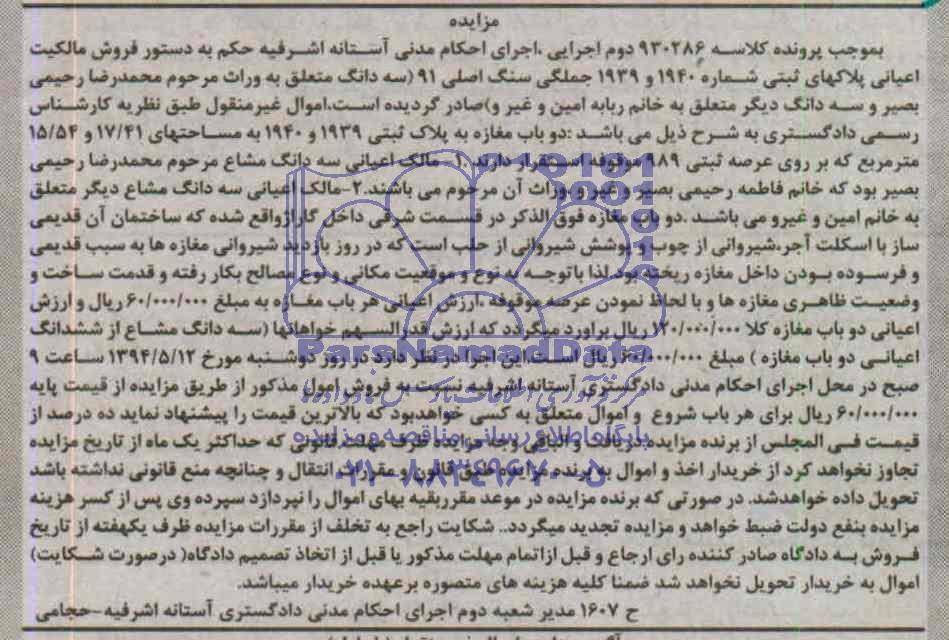 مزایده
بموجب پرونده کلاسه ۹۳۰۲۸۶ دوم اجرایی ،اجرای احکام مدنی آستانه اشرفیه حکم به دستور فروش مالکیت
اعیانی پلاکهای ثبتی شماره ۱۹۴۰ و ۱۹۳۹ جملگی سنگ اصلی ۹۱ (سه دانگ متعلق به وراث مرحوم محمدرضا رحیمی
بصیر و سه دانگ دیگر متعلق به خانم ربابه امین و غیر و)صادر گردیده است.اموال غیرمنقول طبق نظریه کارشناس
رسمی دادگستری به شرح ذیل می باشد :دو باب مغازه به پلاک ثبتی ۱۹۳۹ و ۱۹۴۰ به مساحتهای ۱۷/۴۱ و ۱۵/۵۴
مترمربع که بر روی عرصه ثبتی ۹۸۹ موقوفه استقرار دارند .۱- مالک اعیانی سه دانگ مشاع مرحوم محمدرضا رحیمی
بصیر بود که خانم فاطمه رحیمی بصیر و غیر و .وراث آن مرحوم می باشند.۲-مالک اعیانی سه دانگ مشاع دیگر متعلق
به خانم امین و غیرو می باشند .دو باب مغازه فوق الذکر در قسمت شرقی داخل گاراژواقع شده که ساختمان آن قدیمی
ساز با اسکلت آجر،شیروانی از چوب و پوشش شیروانی از حلب است که در روز بازدید شیروانی مغازه ها به سبب قدیمی
و فرسوده بودن داخل مغازه ریخته بود.لذا باتوجه به نوع و موقعیت مکانی و نوع مصالح بکار رفته و قدمت ساخت و
وضعیت ظاهری مغازه ها و با لحاظ نمودن عرصه موقوفه .ارزش اعیانی هر باب مغازه به مبلغ ۶۰/۰۰۰/۰۰۰ ریال و ارزش
اعیانی دو باب مغازه کلا ۱۲۰/۰۰۰/۰۰۰ ریال براورد میگردد که ارزش قدرالسهم خواهانها (سه دانگ مشاع از ششدانگ
اعیانی دو باب مغازه ) مبلغ ۶۰/۰۰۰/۰۰۰ ریال است.این اجرا در نظر دارد در روز دوشنبه مورخ ۱۳۹۴/۵/۱۲ ساعت ۹
صبح در محل اجرای احکام مدنی دادگستری آستانه اشرفیه نسبت به فروش امول مذکور از طریق مزایده از قیمت پایه
۶۰/۰۰۰/۰۰۰ ریال برای هر باب شروع و اموال متعلق به کسی خواهدبود که بالاترین قیمت را پیشنهاد نماید ده درصد از
قیمت فی المجلس از برنده مزایده دریافت و الباقی وجه مزایده ظرف مهلت قانونی که حداکثر یک ماه از تاریخ مزایده
تجاوز نخواهد کرد از خریدار اخذ و اموال به برنده مزایده طبق قانون و مقررات انتقال و چنانچه منع قانونی نداشته باشد
تحویل داده خواهدشد. در صورتی که برنده مزایده در موعد مقرربقیه بهای اموال را نپردازد سپرده وی پس از کسر هزینه
مزایده بنفع دولت ضبط خواهد و مزایده تجدید میگردد.. شکایت راجع به تخلف از مقررات مزایده ظرف یکهفته از تاریخ
فروش به دادگاه صادر کننده رای ارجاع و قبل ازاتمام مهلت مذکور یا قبل از اتخاذ تصمیم دادگاه( درصورت شکایت)
اموال به خریدار تحویل نخواهد شد ضمنا کلیه هزینه های متصوره برعهده خریدار میباشد.
ح ۱۶۰۷ مدیر شعبه دوم اجرای احکام مدنی دادگستری آستانه اشرفیه-حجامی
ParsNamadData
پایگاه اطلاع رسانی مناقصه و مزایده
۰۲۱-۸۸۳۴۹۶۷۰-۵